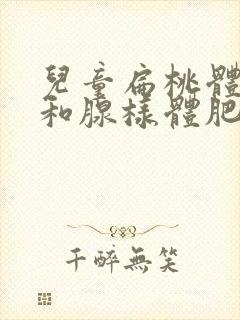 兒童扁桃體
和腺樣體肥
千醉無笑